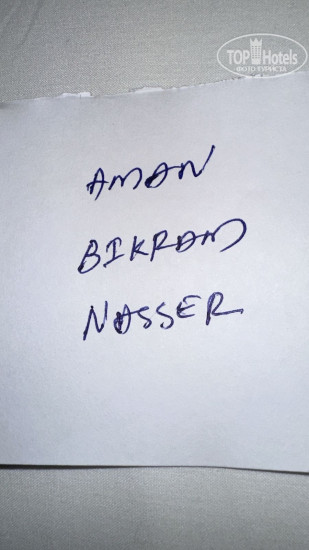 TOP Hotels
ФОТО ТУРИСТА
AMAN
BIKRAM
NASSER